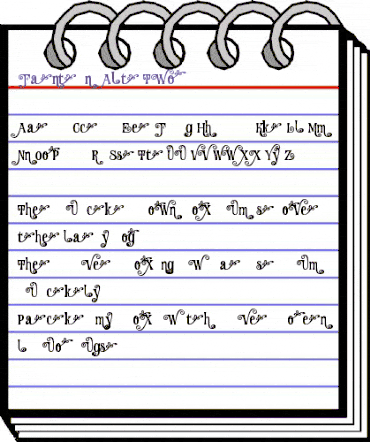 n Alte Two
Aa Cc Ee F g Hh Kk Ll Mm
Nn oo P R Ss Tt UU VV WW XX Yy Z
The U ck oWn oX Um s oVe
the La y og
The Ve oX ng W a s Um
U ckLy
Pack my oX W th Ve o en
L Uo Ugs